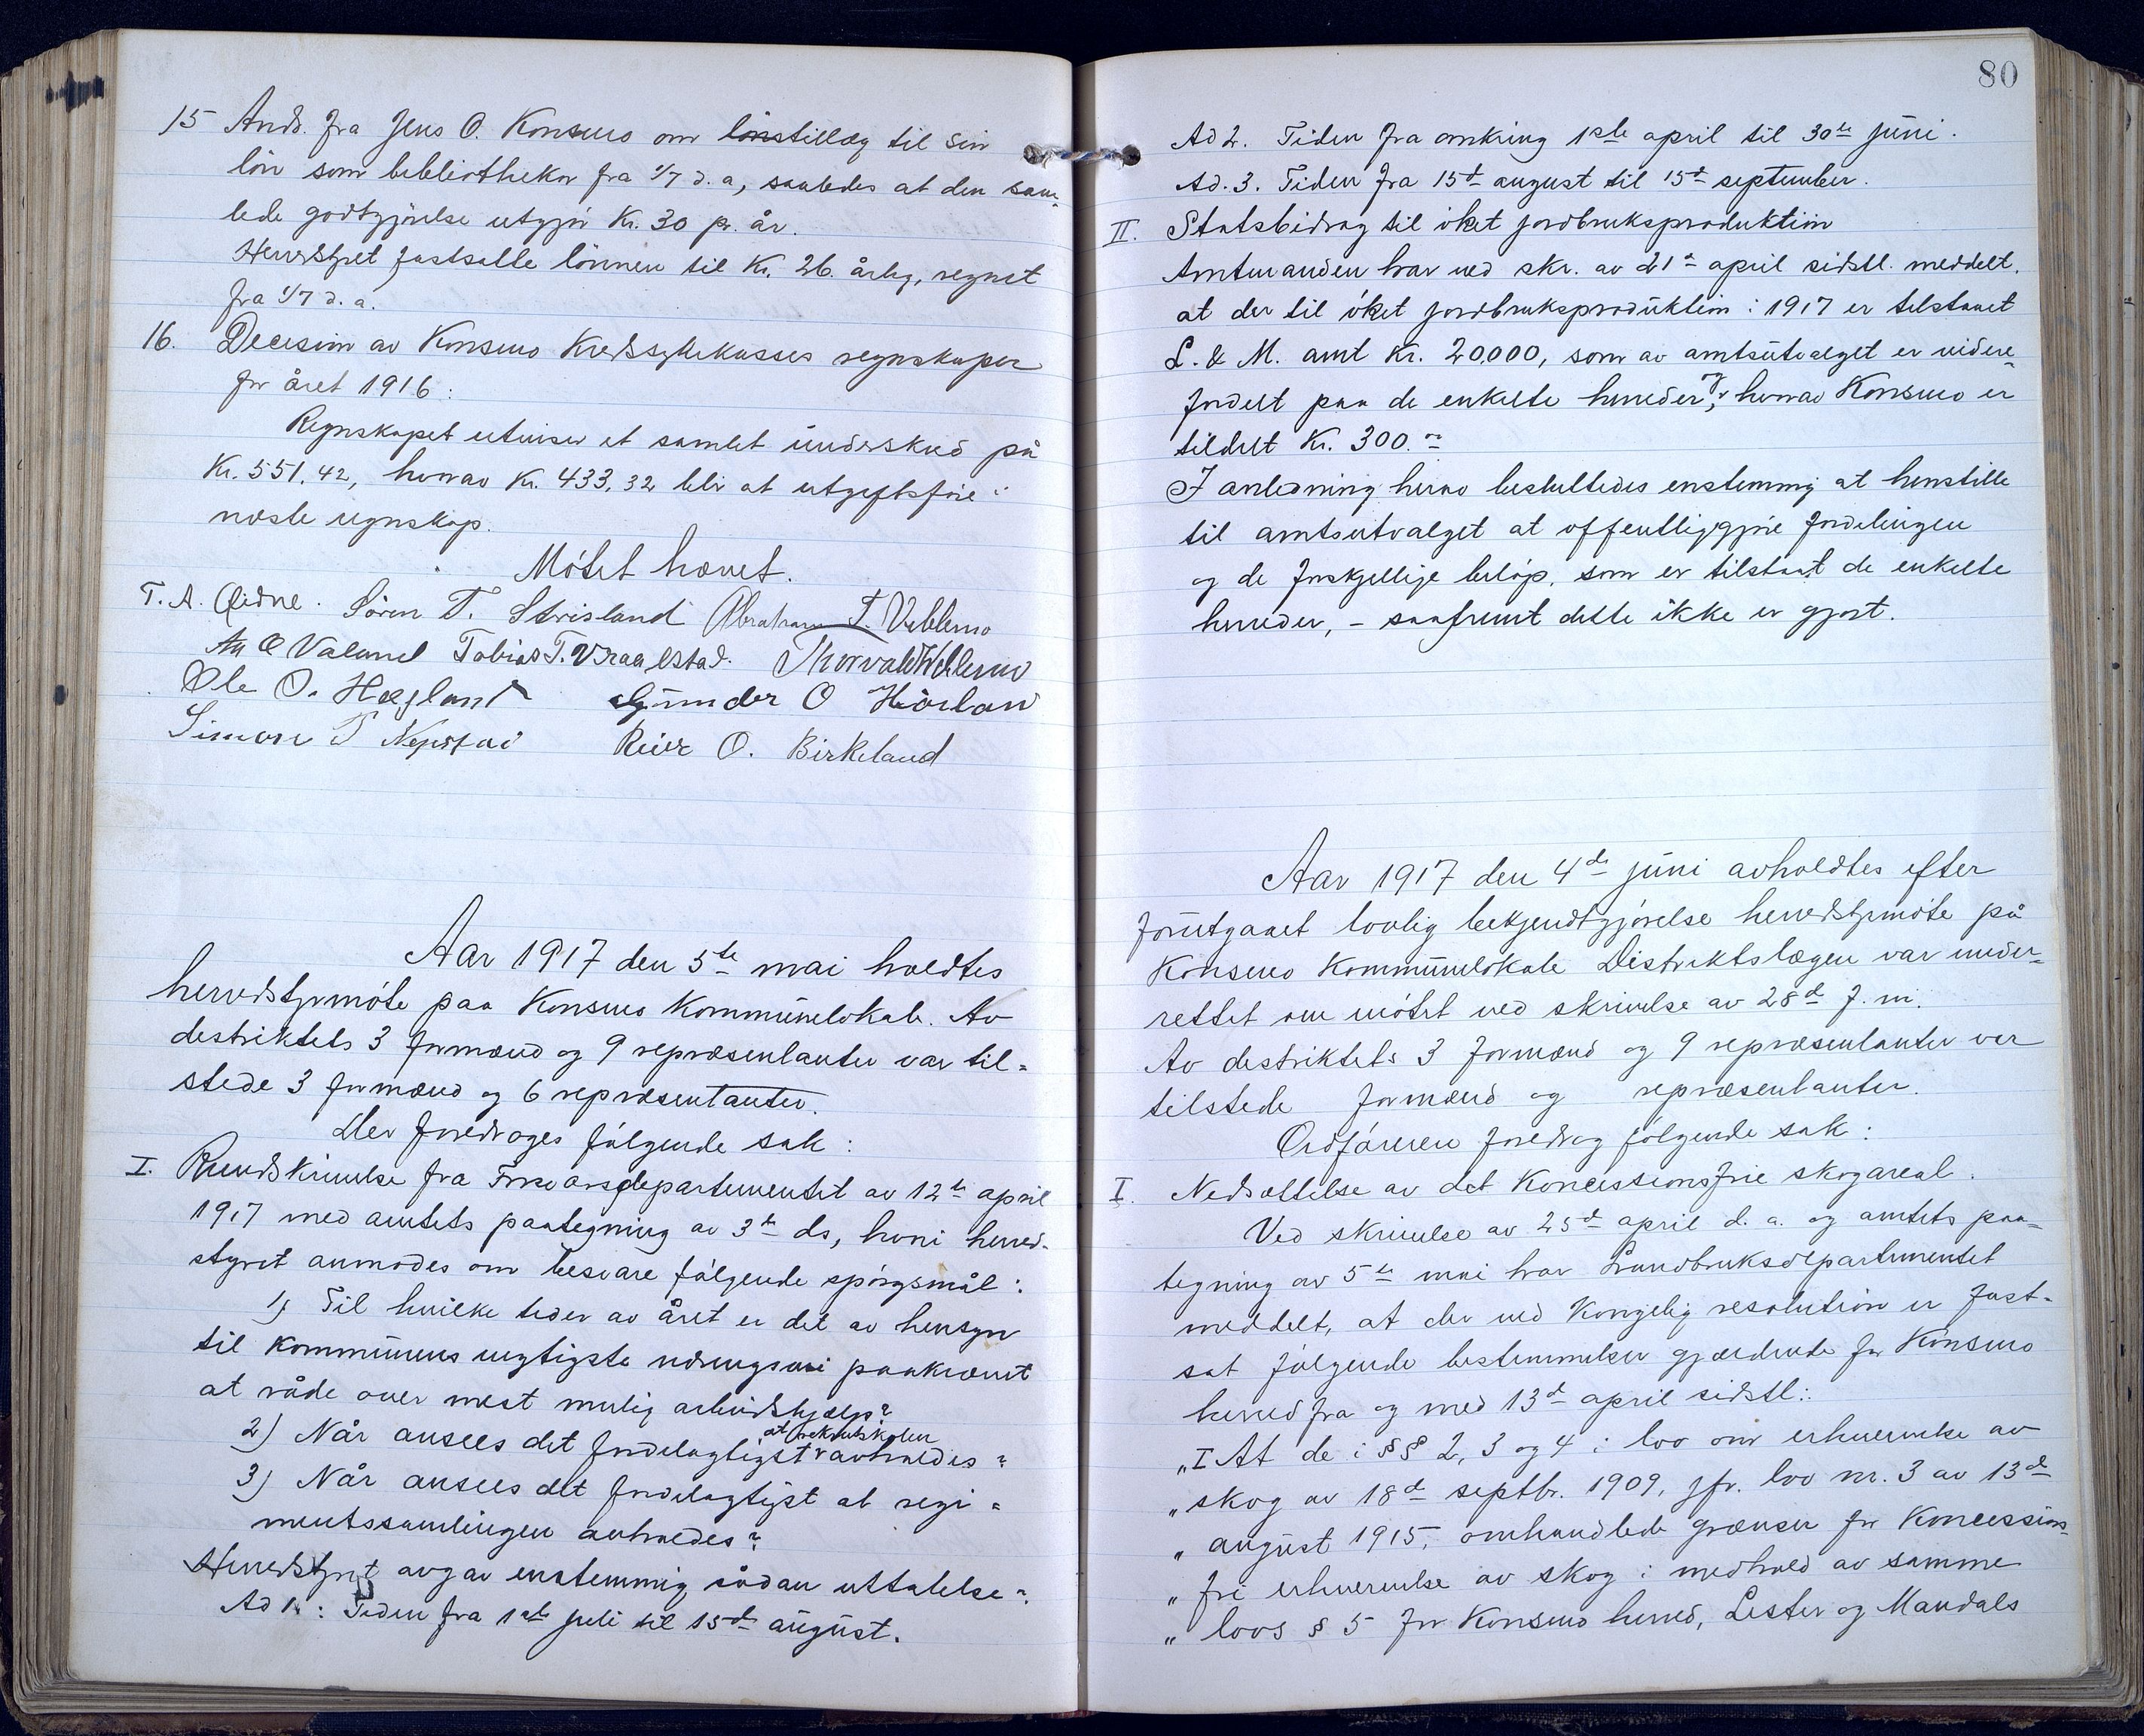 15 Ands. fra Jens O. Konsmo om lønstillæg til sin
løn som bibliothekar fra 1/7 d. a, saaledes at den sam-
lede godtgjørelse utgjør Kr. 30 pr. år.
Herredstyret fastsatte lønnen til Kr. 26 årlig, regnet
fra 1/7 d. a.
16. Decision av Konsmo Kredssykekasses regnskaper
for året 1916:
Regnskapet utviser et samlet underskud på
Kr. 551,42, hvorav Kr. 433,32 blir at utgiftsføre i
næste regnskap.
Møtet hævet.
T. A. Eidne. Søren T. Strisland Abraham T. Veblemo
O Valand Tobias T. Vraalstad. Thorvald Veblemo
Ole O. Hægland Gunder O Hårland
Simon T Nepstad Reier O. Birkeland
Aar 1917 den 5te mai holdtes
herredstyrmøte paa Konsmo Kommunelokale. Av
destriktets 3 formænd og 9 repræsentanter var til-
stede 3 formænd og 6 repræsentanter.
Der foredroges følgende sak:
I. Rundskrivelse fra Forsvarsdepartementet av 12te april
1917 med amtets paategning av 3de ds, hvori herred-
styret anmodes om besvare følgende spørgsmål:
1) Til hvilke tider av året er det av hensyn
til kommunens vigtigste næringsvei paakrævet
at råde over mest mulig arbeidshjælp?
2) Når ansees det fordelagtigst at rekrutskolen avholdes?
3) Når ansees det fordelagtigst at regi-
mentssamlingen avholdes?
Herredstyret avgav enstemmig sådan uttalelse:
Ad 1.: Tiden fra 1ste juli til 15de august.
80
Ad 2. Tiden fra omkring 1ste april til 30te juni.
Ad. 3. Tiden fra 15de august til 15de september.
II. Statsbidrag til øket jordbruksproduktion
Amtmanden har ved skr. av 21de april sidstl. meddelt,
at der til øket jordbruksproduktion i 1917 er tilstaaet
L. & M. amt Kr. 20.000, som av amtsutvalget er videre
fordelt paa de enkelte herreder, hvorav Konsmo er
tildelt Kr. 300.00
I anledning herav besluttedes enstemmig at henstille
til amtsutvalget at offentliggjøre fordelingen
og de forskjellige beløp, som er tilstaat de enkelte
herreder, - saafremt dette ikke er gjort.
Aar 1917 den 4de juni avholdtes efter
forutgaaet lovlig bekjendtgjørelse herredstyrmøte på
Konsmo Kommunelokale Distriktslægen var under-
rettet om møtet ved skrivelse av 28de f. m.
Av destriktets 3 formænd og 9 repræsentanter var
tilstede formænd og repræsentanter.
Ordføreren foredrog følgende sak:
I. Nedsættelse av det Koncessionsfrie skogareal.
Ved skrivelse av 25de april d. a. og amtets paa-
tegning av 5te mai har Landbruksdepartementet
meddelt, at der ved Kongelig resolution er fast-
sat følgende bestemmelser gjældende for Konsmo
herred fra og med 13de april sidstl.:
„I At de i §§ 2, 3 og 4 i lov om erhvervelse av
„ skog av 18de septbr. 1909, jfr. lov nr. 3 av 13de
„ august 1915, omhandlede grænser for Koncessions-
„ fri erhvervelse av skog i medhold av samme
„ lovs § 5 for Konsmo herred, Lister og Mandals